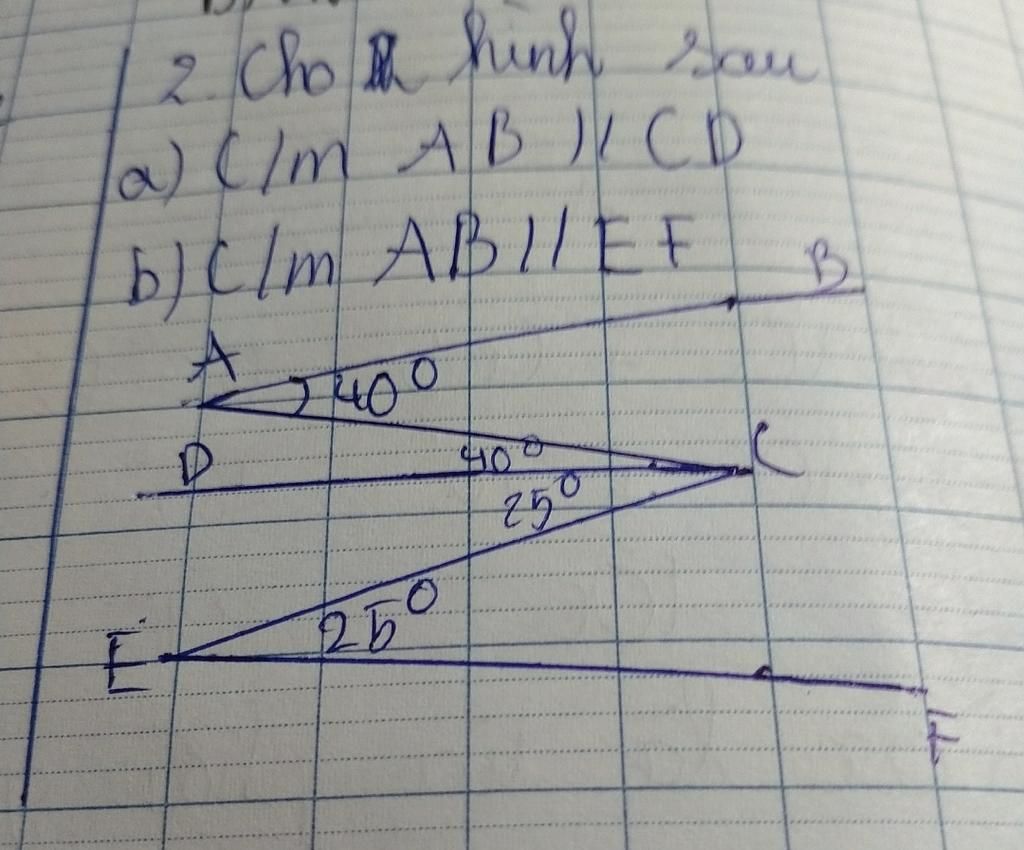 2. Cho hình sau
a) C/m AB // CD
b) C/m AB // EF
B
A
40°
D
40°
C
25°
E
25°
F